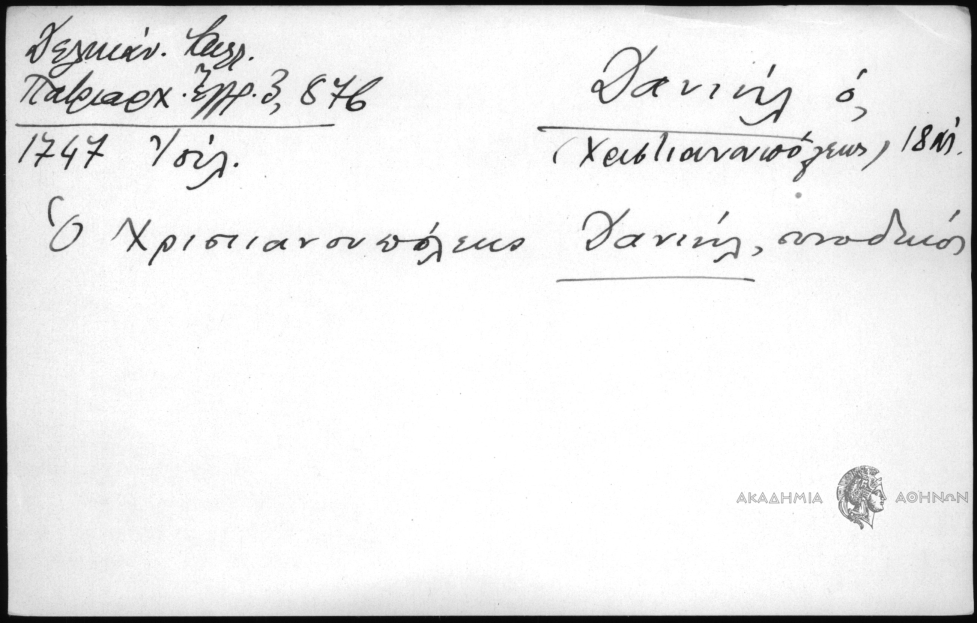 Δελικάν. Καλλ.
Πατριαρχ. Ἔγγρ. 3, 876
1747 Ἰούλ.
Δανιήλ ὁ,
(Χριστιανουπόλεως) 18 αἰ.
Ὁ Χριστιανουπόλεως Δανιήλ, συνοδικός
ΑΚΑΔΗΜΙΑ ΑΘΗΝΩΝ